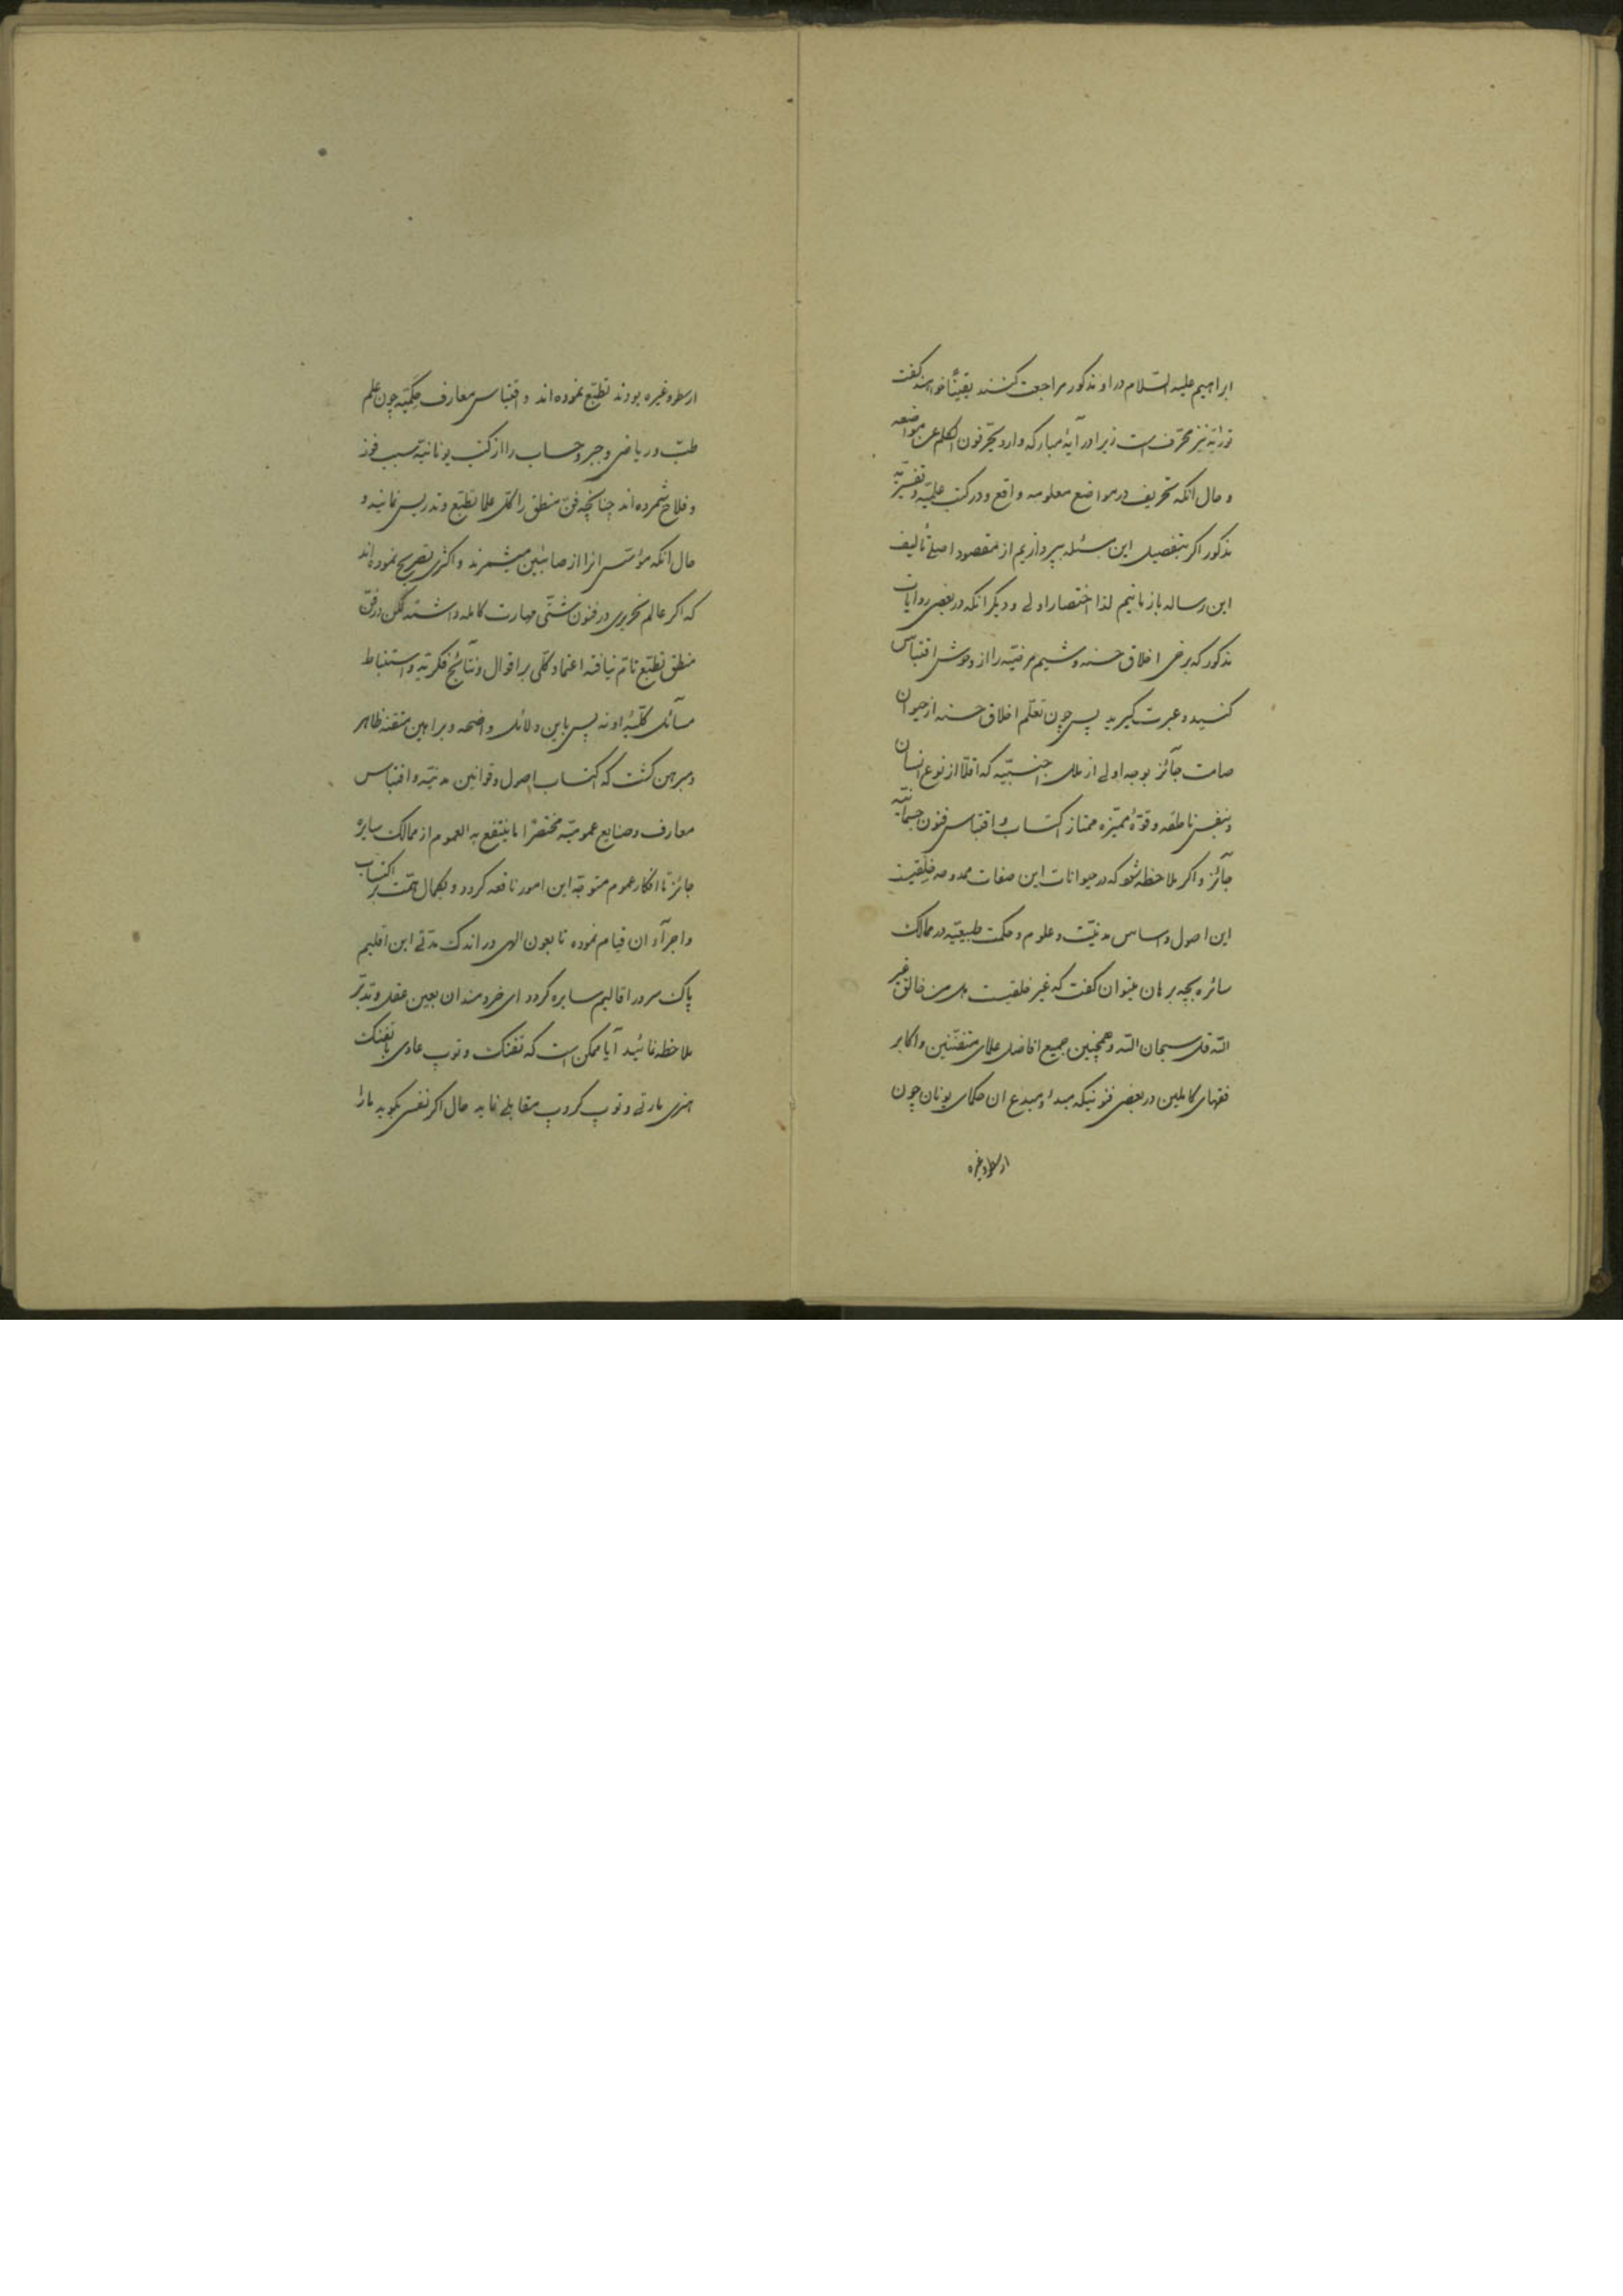 ابراهیم علیه السّلام در او مذکور مراجعت کنند یقیناً خواهند گفت
توراته نیز محرّف است زیرا در آیهٔ مبارکه وارد یحرّفون الکلم عن مواضعه
و حال انکه تحریف در مواضع معلومه واقع و در کتب علمیّه و تفسیریّه
مذکور اگر بتفصیل این مسئله بپردازیم از مقصود اصلی تألیف
این رساله باز مانیم لذا اختصار اولی و دیگر انکه در بعضی روایات
مذکور که برخی اخلاق حسنه و شیم مرضیّه را از وحوش اقتباس
کنید و عبرت گیرید پس چون تعلّم اخلاق حسنه از حیوان
صامت جائز بوجه اولی از ملل اجنبیّه که اقلّاً از نوع انسان
و بنفس ناطقه و قوّهٔ ممیّزه ممتاز اکتساب و اقتباس فنون جسمانیّه
جائز و اگر ملاحظه شود که در حیوانات این صفات ممدوحه خلقیست
این اصول و اساس مدنیّت و علوم و حکمت طبیعیّه در ممالک
سائره بچه برهان میتوان گفت که غیر خلقیست هل من خالق غیر
اللّه قل سبحان اللّه و همچنین جمیع افاضل علمای متفنّنین و اکابر
فقهای کاملین در بعضی فنونیکه مبدأ و مبدع ان حکمای یونان چون
ارسطو و غیره
ارسطو و غیره بودند تطبّع نموده‌اند و اقتباس معارف حکمیّه چون علم
طبّ و ریاضی و جبر و حساب را از کتب یونانیّه سبب فوز
و فلاح شمرده‌اند چنانچه فنّ منطق را کلّ علما تطبّع و تدریس نمایند و
حال انکه مؤسّس انرا از صابئین میشمرند و اکثری تصریح نموده‌اند
که اگر عالم نحریری در فنون شتّی مهارت کامله داشته لکن در فنّ
منطق تطبّع تامّ نیافته اعتماد کلّی بر اقوال و نتائج فکریّه و استنباط
مسائل کلّیّهٔ او نه پس باین دلائل واضحه و براهین متقنه ظاهر
و مبرهن گشت که اکتساب اصول و قوانین مدنیّه و اقتباس
معارف و صنایع عمومیّه مختصراً ما ینتفع به العموم از ممالک سایره
جائز تا افکار عموم متوجّه این امور نافعه گردد و بکمال همّت بر اکتساب
و اجرآء ان قیام نموده تا بعون الهی در اندک مدّتی این اقلیم
پاک سرور اقالیم سایره گردد ای خردمندان بعین عقل و تدبّر
ملاحظه نمائید آیا ممکن است که تفنک و توپ عادی با تفنک
هنری مارتی و توپ کروپ مقابلی نماید حال اگر نفسی بگوید مارا